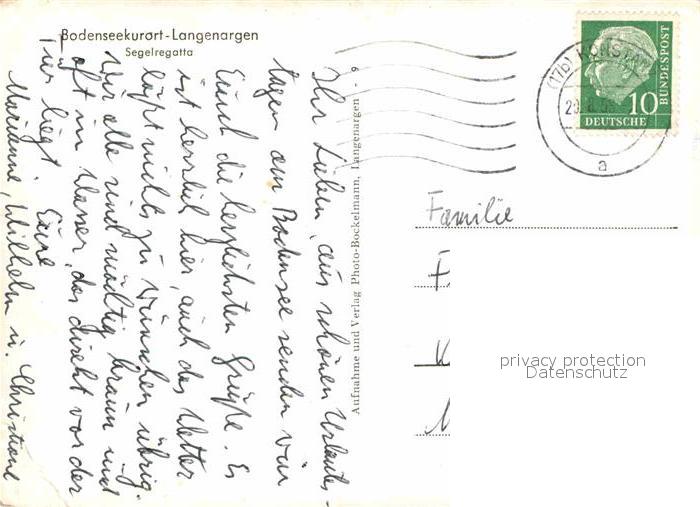 Bodenseekurort-Langenargen
Segelregatta
Ihr Lieben, aus schönen Urlaubs-
tagen am Bodensee senden wir
Euch die herzlichsten Grüße. Es
ist herrlich hier, auch das Wetter
läßt nichts zu wünschen übrig.
Wir alle sind mächtig braun und
oft im Wasser, das direkt vor der
Tür liegt. Eure
Marianne, Wilhelm u. Christiane
Aufnahme und Verlag Photo-Bockelmann, Langenargen - 9
(17b) KONSTAN
a
10
DEUTSCHE
BUNDESPOST
Familie
privacy protection
Datenschutz